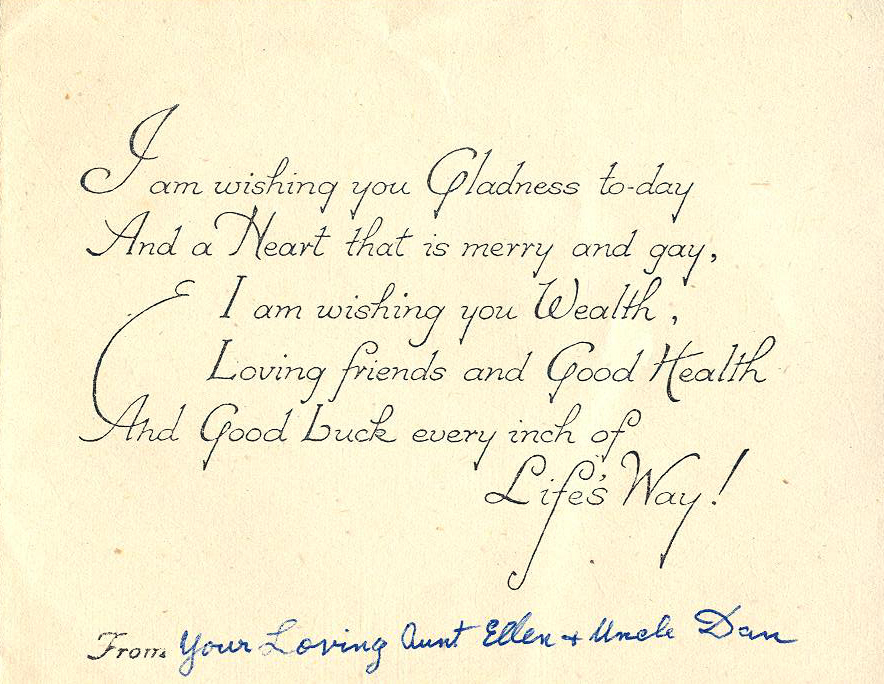 I am wishing you Gladness to-day
And a Heart that is merry and gay,
I am wishing you Wealth,
Loving friends and Good Health
And Good Luck every inch of
Life's Way!
From Your Loving Aunt Ellen + Uncle Dan